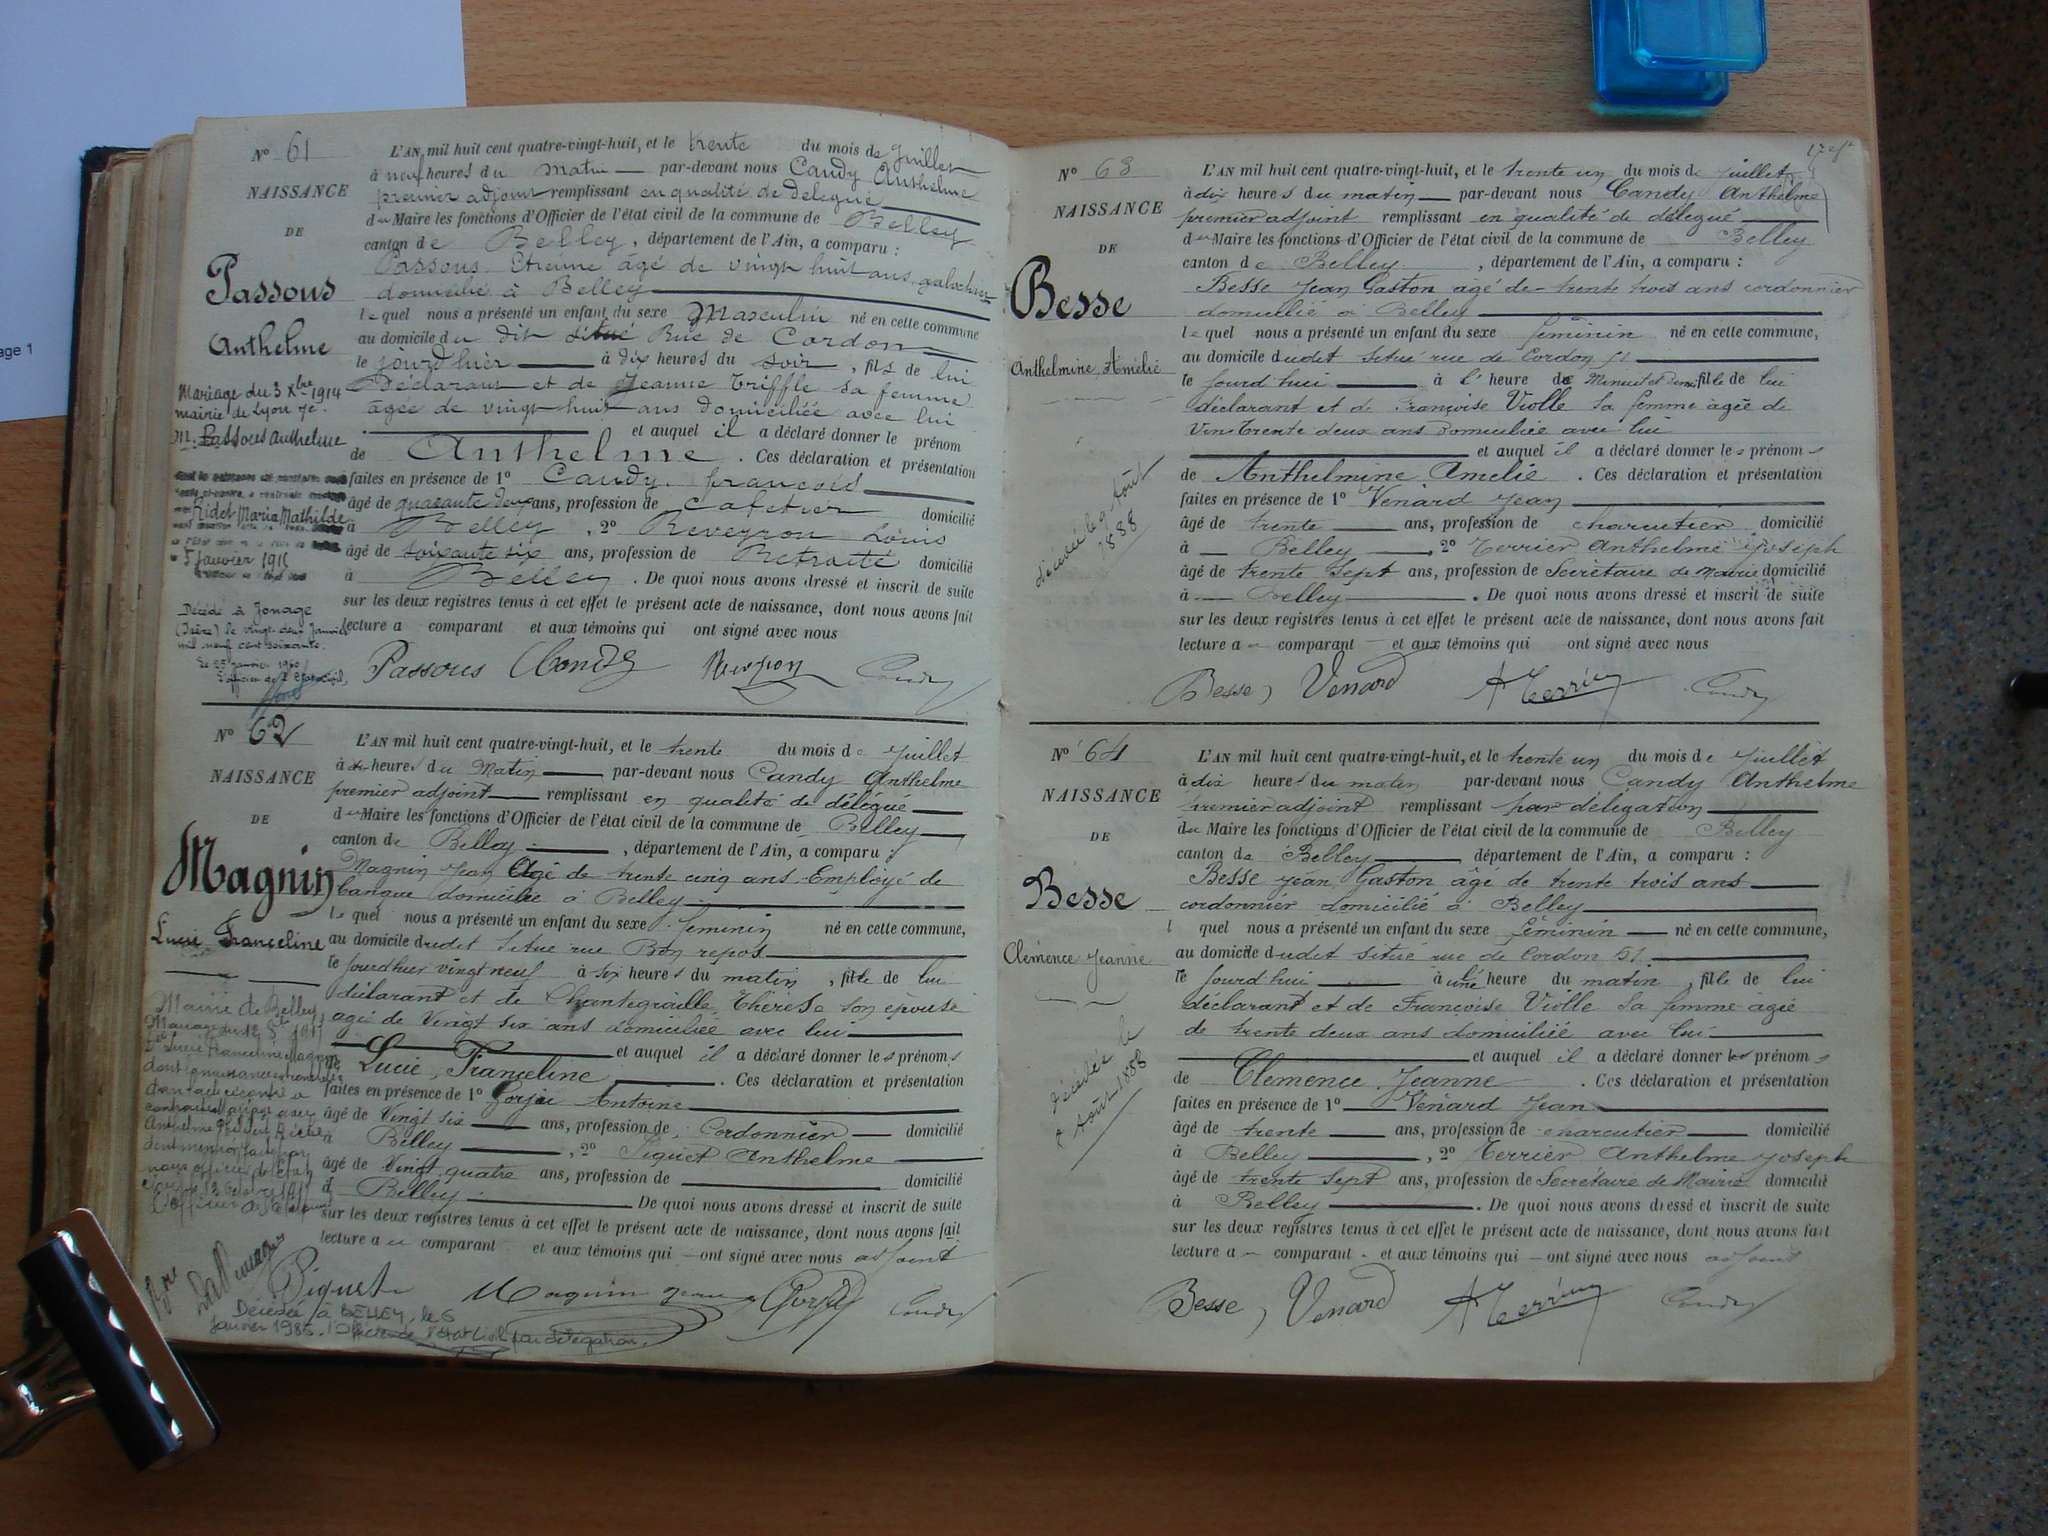 age 1
N° 61
NAISSANCE
DE
Passous
Anthelme
Mariage du 3 Xbre 1914
mairie de Lyon 7e
M. Passous Anthelme
Ridet Maria Mathilde
5 Janvier 1915
Décédé à Jonage
(Isère) le vingt-deux Janvier
mil neuf cent soixante.
Le 25 janvier 1960
L'officier de l'Etat Civil,
L'AN mil huit cent quatre-vingt-huit, et le trente du mois de Juillet
à neuf heures du matin par-devant nous Candy Anthelme
premier adjoint remplissant en qualité de délégué
du Maire les fonctions d'Officier de l'état civil de la commune de Belley
canton de Belley, département de l'Ain, a comparu :
Passous Etienne âgé de vingt huit ans, galochier
domicilié à Belley
lequel nous a présenté un enfant du sexe Masculin né en cette commune
au domicile du dit situé Rue de Cordon
le jourd'hier à dix heures du soir, fils de lui
Déclarant et de Jeanne Triffle sa femme
âgée de vingt huit ans domiciliée avec lui
et auquel il a déclaré donner le prénom
de Anthelme. Ces déclaration et présentation
faites en présence de 1° Candy françois
âgé de quarante deux ans, profession de cafetier domicilié
à Belley, 2° Reveyron Louis
âgé de soixante six ans, profession de Retraité domicilié
à Belley. De quoi nous avons dressé et inscrit de suite
sur les deux registres tenus à cet effet le présent acte de naissance, dont nous avons fait
lecture a comparant et aux témoins qui ont signé avec nous
Passous Candy Reveyron Candy
N° 62
NAISSANCE
DE
Magnin
Lucie Franceline
Mairie de Belley
L'AN mil huit cent quatre-vingt-huit, et le trente du mois de Juillet
à dix heures du Matin par-devant nous Candy Anthelme
premier adjoint remplissant en qualité de délégué
du Maire les fonctions d'Officier de l'état civil de la commune de Belley
canton de Belley, département de l'Ain, a comparu :
Magnin Jean Agé de trente cinq ans Employé de
banque domicilié à Belley
lequel nous a présenté un enfant du sexe féminin né en cette commune,
au domicile dudet situé rue Bon repos
le jourdhier vingt neuf à six heures du matin, fille de lui
déclarant et de Chantegraille Thérèse son épouse
agé de Vingt six ans domiciliée avec lui
et auquel il a déclaré donner les prénoms
de Lucie, Franceline. Ces déclaration et présentation
faites en présence de 1° Gorju Antoine
âgé de Vingt six ans, profession de Cordonnier domicilié
à Belley, 2° Piquet Anthelme
âgé de Vingt quatre ans, profession de domicilié
à Belley De quoi nous avons dressé et inscrit de suite
sur les deux registres tenus à cet effet le présent acte de naissance, dont nous avons fait
lecture au comparant et aux témoins qui ont signé avec nous adjoint
Piquet Magnin Jean Gorju Candy
Décédée à BELLEY, le 6
Janvier 1985. l'Officier de l'état Civil par délégation.
N° 63
NAISSANCE
DE
Besse
Anthelmine, Amélie
décédée le août
1888
L'AN mil huit cent quatre-vingt-huit, et le trente un du mois de juillet
à dix heures du matin par-devant nous Candy Anthelme
premier adjoint remplissant en qualité de délegué
du Maire les fonctions d'Officier de l'état civil de la commune de Belley
canton de Belley, département de l'Ain, a comparu :
Besse Jean Gaston agé de trente trois ans cordonnier
domicilié à Belley
lequel nous a présenté un enfant du sexe féminin né en cette commune,
au domicile dudet situé rue de Cordon 51
le jourd'hui à l'heure de Minuit et Demi fille de lui
déclarant et de Françoise Violle sa femme agée de
Trente deux ans domiciliée avec lui
et auquel il a déclaré donner les prénoms
de Anthelmine Amélie. Ces déclaration et présentation
faites en présence de 1° Venard Jean
âgé de trente ans, profession de charcutier domicilié
à Belley, 2° Terrier Anthelme Joseph
âgé de trente Sept ans, profession de Secrétaire de Mairie domicilié
à Belley. De quoi nous avons dressé et inscrit de suite
sur les deux registres tenus à cet effet le présent acte de naissance, dont nous avons fait
lecture au comparant et aux témoins qui ont signé avec nous
Besse, Venard A Terrier Candy
N° 64
NAISSANCE
DE
Besse
Clémence Jeanne
décédée le
août 1888
L'AN mil huit cent quatre-vingt-huit, et le trente un du mois de Juillet
à dix heures du matin par-devant nous Candy Anthelme
premier adjoint remplissant par délégation
du Maire les fonctions d'Officier de l'état civil de la commune de Belley
canton de Belley, département de l'Ain, a comparu :
Besse Jean Gaston âgé de trente trois ans
cordonnier domicilié à Belley
l quel nous a présenté un enfant du sexe féminin né en cette commune,
au domicile dudet situé rue de Cordon 51
le jourd'hui à une heure du matin, fille de lui
déclarant et de Françoise Violle sa femme agée
de trente deux ans domiciliée avec lui
et auquel il a déclaré donner les prénoms
de Clemence Jeanne. Ces déclaration et présentation
faites en présence de 1° Venard Jean
âgé de trente ans, profession de charcutier domicilié
à Belley, 2° Terrier Anthelme Joseph
âgé de trente Sept ans, profession de Secrétaire de Mairie domicilié
à Belley. De quoi nous avons dressé et inscrit de suite
sur les deux registres tenus à cet effet le présent acte de naissance, dont nous avons fait
lecture au comparant et aux témoins qui ont signé avec nous adjoint
Besse, Venard A Terrier Candy